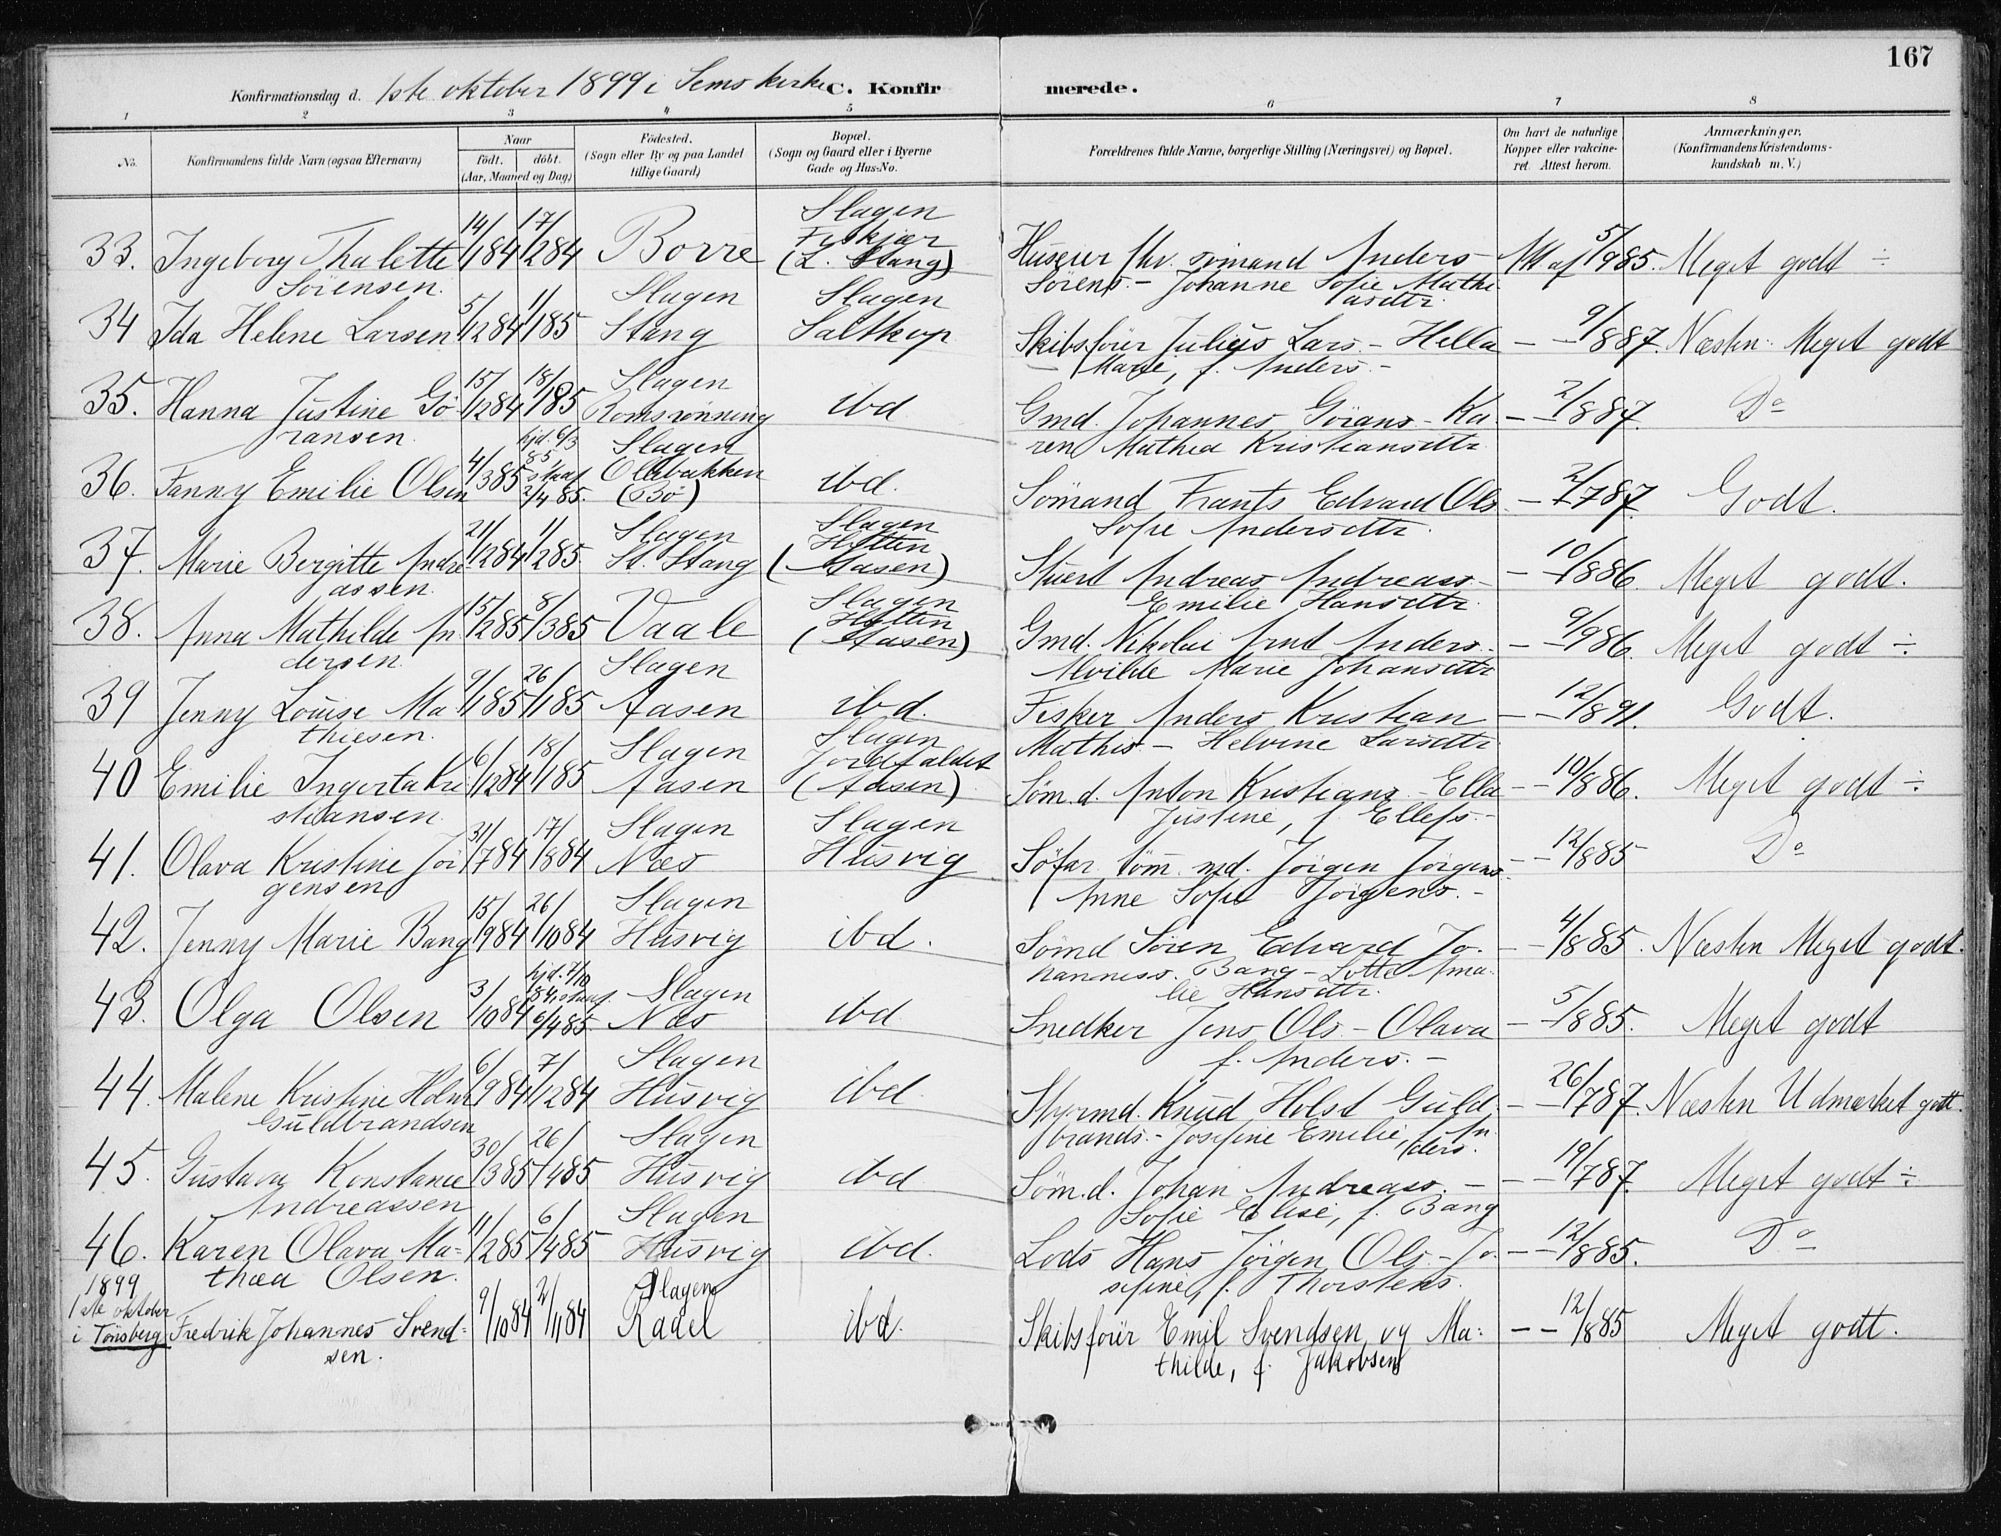 167
Konfirmationsdag d. 1ste oktober 1899 i Sems kirke C. Konfirmerede.
1 2 3 4 5 6 7 8
No. Konfirmandens fulde Navn (ogsaa Efternavn) Naar født. døbt. (Aar, Maaned og Dag) Fødested. (Sogn eller By og paa Landet tillige Gaard) Bopæl. (Sogn og Gaard eller i Byerne Gade og Hus-No. Forældrenes fulde Navne, borgerlige Stilling (Næringsvei) og Bopæl. Om havt de naturlige Kopper eller vakcineret. Attest herom. Anmærkninger. (Konfirmandens Kristendomskundskab m. V.)
33. Ingeborg Thalette Sörensen 14/1 84 17/2 84 Borre Slagen (L. Stang) Huseier sömand Anders Sörens. - Johanne Sofie Mathiasdttr. Att af 5/9 85. Meget godt ÷
34 Ida Helene Larsen 5/12 84 1/1 85 Slagen Stang Slagen Saltkop Skibsförer Julius Lars. - Hella Marie, f. Anders. - - - 9/8 87. Næsten Meget godt
35. Hanna Justine Göransen. 15/12 84 18/1 85 Slagen Romsrönning ibd Gmd. Johannes Görans - Karen Mathea Kristiansdttr - - 2/8 87. Do
36. Fanny Emilie Olsen 4/3 85 hjd. 6/3 85 stadf 2/4 85. Slagen Ollebakken (Bö) ibd. Sömand Frants Edvard Ols Sofie Andersdttr. - - 2/7 87. Godt.
37. Marie Bergitte Andreassen. 21/12 84 1/2 85. Slagen St. Stang Slagen Hytten (Aasen) Stuert Andreas Andreass. - Emilie Hansdttr. - - 10/8 86 Meget godt.
38. Anna Mathilde Andersen. 15/2 85 8/3 85 Vaale Slagen Hytten (Aasen) Gmd. Nikolai Arnt Anders. - Alvilde Marie Johansdttr - - 9/9 86. Meget godt ÷
39 Jenny Louise Mathiesen. 9/1 85 26/1 85 Slagen Aasen ibd. Fisker Anders Kristian Mathis - Helvine Larsdttr. - - 12/8 91. Godt.
40 Emilie Ingerta Kristiansen. 6/12 84 18/1 85 Slagen Aasen Slagen Jordfaldet (Aasen) Söm.d. Anton Kristians - Ella Justine, f. Ellefs. - - - 10/8 86. Meget godt ÷
41. Olava Kristine Jörgensen 31/7 84 17/8 84 Slagen Næs Slagen Husvig Söfar. töm. md. Jörgen Jörgens. Anne Sofie Jörgens. - - - 12/8 85 Do
42. Jenny Marie Bang 15/9 84 26/10 84 Slagen Husvig ibd. Sömd Sören Edvard Johanness. Bang - Lotte Amalie Hansdttr. - - 4/8 85. Næsten Meget godt.
43. Olga Olsen 3/10 84 hjd. 7/10 84 stadf. 6/4 85 Slagen Næs ibd Snedker Jens Ols - Olava f. Anders. - - - 5/8 85. Meget godt
44. Malene Kristine Holm Guldbrandsen 6/9 84 7/12 84 Slagen Husvig ibd. Styrmd. Knud Holst Guldbrands. - Josefine Emilie, f. Anders. - - 26/7 87. Næsten Udmærket godt.
45. Gustava Konstance Andreassen 30/3 85 26/4 85 Slagen Husvig ibd Söm.d. Johan Andreass. - Sofie Elise, f. Bang - - 19/7 87. Meget godt ÷
46. Karen Olava Mathea Olsen. 11/2 85 6/4 85 Slagen Husvig ibd. Lods Hans Jörgen Ols - Josefine, f. Thorstens. - - 12/8 85. Do
1899 1ste oktober i Tönsberg Fredrik Johannes Svendsen. 9/10 84 2/11 84 Slagen Radel ibd. Skibsförer Emil Svendsen og Mathilde, f. Jakobsen - - 12/8 85 Meget godt.